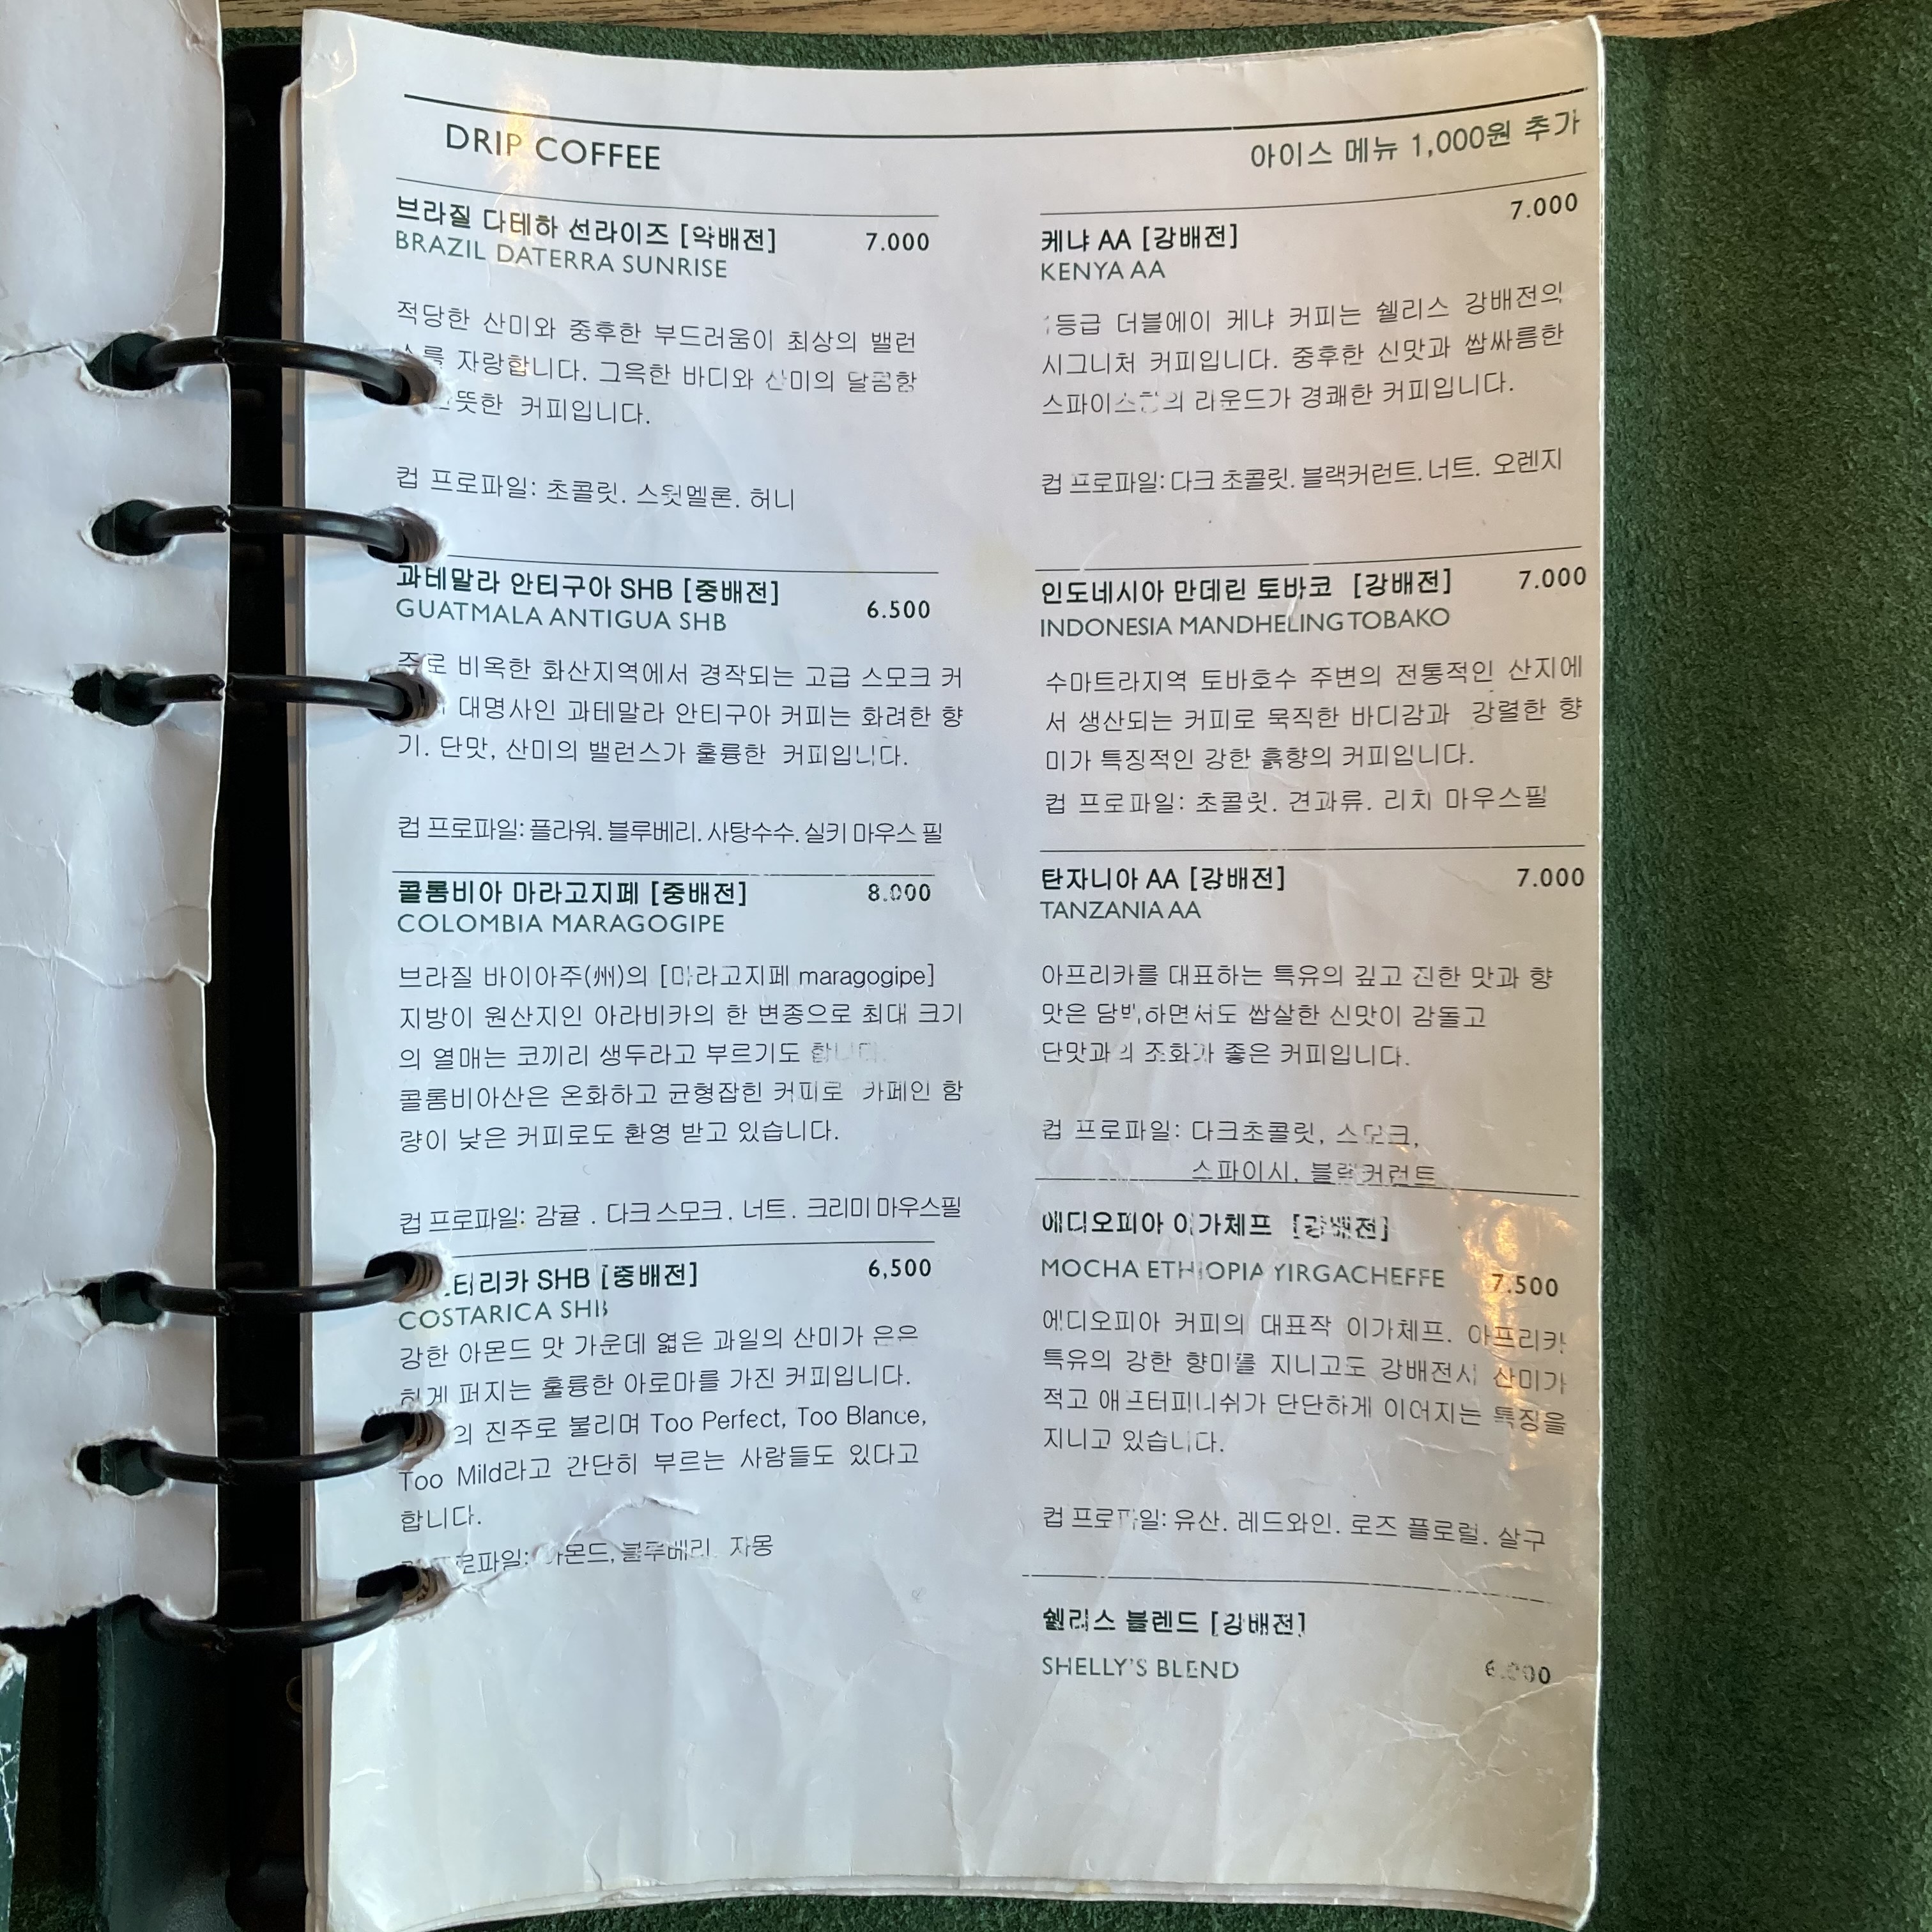 DRIP COFFEE
아이스 메뉴 1,000원 추가
브라질 다테하 선라이즈 [약배전] 7.000
BRAZIL DATERRA SUNRISE
적당한 산미와 중후한 부드러움이 최상의 밸런
자랑합니다. 그윽한 바디와 산미의 달콤함
커피입니다.
컵 프로파일: 초콜릿. 스윗멜론. 허니
과테말라 안티구아 SHB [중배전] 6.500
GUATMALA ANTIGUA SHB
주로 비옥한 화산지역에서 경작되는 고급 스모크 커
대명사인 과테말라 안티구아 커피는 화려한 향
기. 단맛, 산미의 밸런스가 훌륭한 커피입니다.
컵 프로파일: 플라워. 블루베리. 사탕수수. 실키 마우스 필
콜롬비아 마라고지페 [중배전] 8.000
COLOMBIA MARAGOGIPE
브라질 바이아주(州)의 [마라고지페 maragogipe]
지방이 원산지인 아라비카의 한 변종으로 최대 크기
의 열매는 코끼리 생두라고 부르기도 합니다.
콜롬비아산은 온화하고 균형잡힌 커피로 카페인 함
량이 낮은 커피로도 환영 받고 있습니다.
컵 프로파일: 감귤 . 다크스모크. 너트. 크리미 마우스필
SHB [중배전] 6,500
COSTARICA SHB
강한 아몬드 맛 가운데 엷은 과일의 산미가 은은
하게 퍼지는 훌륭한 아로마를 가진 커피입니다.
의 진주로 불리며 Too Perfect, Too Blance,
Too Mild라고 간단히 부르는 사람들도 있다고
합니다.
아몬드, 블루베리. 자몽
케냐 AA [강배전] 7.000
KENYA AA
등급 더블에이 케냐 커피는 쉘리스 강배전의
시그니처 커피입니다. 중후한 신맛과 쌉싸름한
라운드가 경쾌한 커피입니다.
컵 프로파일: 다크 초콜릿. 블랙커런트. 너트. 오렌지
인도네시아 만데린 토바코 [강배전] 7.000
INDONESIA MANDHELING TOBAKO
수마트라지역 토바호수 주변의 전통적인 산지에
서 생산되는 커피로 묵직한 바디감과 강렬한 향
미가 특징적인 강한 흙향의 커피입니다.
컵 프로파일: 초콜릿. 견과류. 리치 마우스필
탄자니아 AA [강배전] 7.000
TANZANIA AA
아프리카를 대표하는 특유의 깊고 진한 맛과 향
맛은 담박,하면서도 쌉살한 신맛이 감돌고
단맛과의 조화가 좋은 커피입니다.
컵 프로파일: 다크초콜릿, 스모크,
스파이시, 블랙커런트
에디오피아 이가체프 [강배전]
MOCHA ETHIOPIA YIRGACHEFFE 7.500
에디오피아 커피의 대표작 이가체프. 아프리카
특유의 강한 향미를 지니고도 강배전시 산미가
적고 애프터피니쉬가 단단하게 이어지는 특징을
지니고 있습니다.
컵 프로파일: 유산. 레드와인. 로즈 플로럴. 살구
쉘리스 블렌드 [강배전]
SHELLY'S BLEND